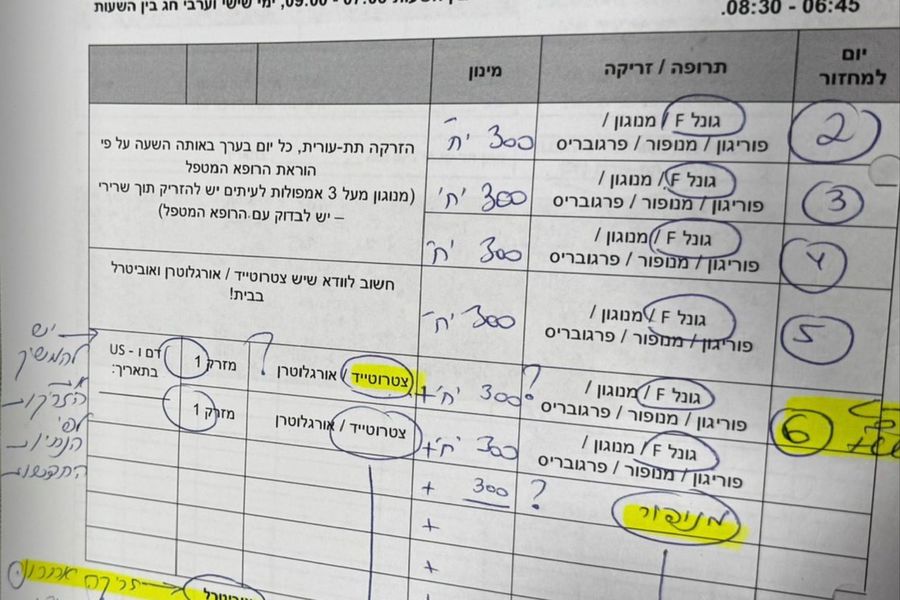 בין השעות 07:00 - 09:00, ימי שישי וערבי חג בין השעות
06:45 - 08:30.
יום למחזור
תרופה / זריקה
מינון
2
גונל F / מנוגון /
פוריגון / מנופור / פרגובריס
300 יח'
הזרקה תת-עורית, כל יום בערך באותה השעה על פי
הוראת הרופא המטפל
(מנוגון מעל 3 אמפולות לעיתים יש להזריק תוך שרירי
– יש לבדוק עם הרופא המטפל)
3
גונל F / מנוגון /
פוריגון / מנופור / פרגובריס
300 יח'
4
גונל F / מנוגון /
פוריגון / מנופור / פרגובריס
300 יח'
חשוב לוודא שיש צטרוטייד / אורגלוטרן ואוביטרל
בבית!
5
גונל F / מנוגון /
פוריגון / מנופור / פרגובריס
300 יח'
6
גונל F / מנוגון /
פוריגון / מנופור / פרגובריס
? 300 יח' +
צטרוטייד / אורגלוטרן
?
מזרק 1
דם ו - US
בתאריך:
גונל F / מנוגון /
פוריגון / מנופור / פרגובריס
300 יח' +
צטרוטייד / אורגלוטרן
מזרק 1
מנופור
? 300 +
+
+
יש
להמשיך
את
הזריקות
לפי
הנחיות
האחיות
זריקה
אוביטרל